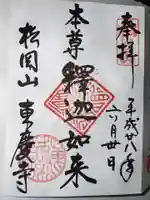 奉拝
平成廿八年
六月廿日
本尊
釋迦如来
松岡山 東慶寺